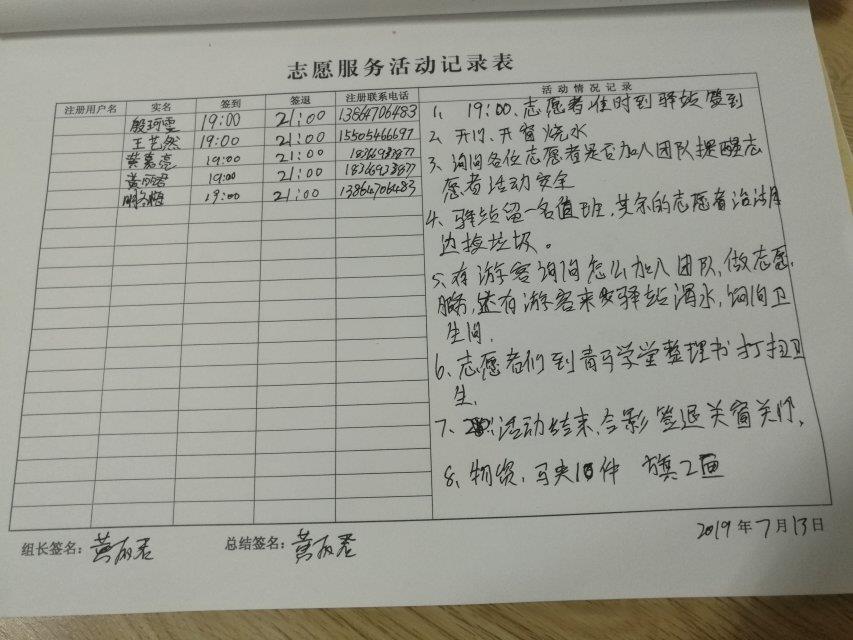 志愿服务活动记录表
注册用户名 实名 签到 签退 注册联系电话 活动情况记录
殷珂雯 19:00 21:00 13864706483
王艺然 19:00 21:00 15505466697
黄嘉亮 19:00 21:00 18366938877
黄丽君 19:00 21:00 18366938877
19:00 21:00 13864706483
1、19:00、志愿者准时到驿站签到
2、开门、开窗烧水
3、询问各位志愿者是否加入团队提醒志
愿者活动安全
4、驿站留一名值班,其余的志愿者沿湖
边捡垃圾。
5、有游客询问怎么加入团队,做志愿
服务,还有游客来驿站喝水,询问卫
生间.
6、志愿者们到青马学堂整理书打扫卫
生.
7、活动结束、合影签退关窗关门.
8、物资、马夹10件 旗2面
组长签名: 黄丽君 总结签名: 黄丽君
2019年7月13日